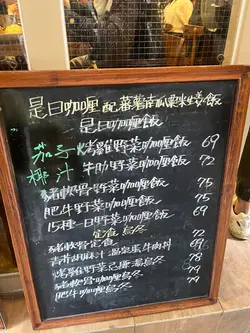 是日咖喱配蕃薯南瓜粟米雜飯
是日咖喱飯
茄子烤雞野菜咖喱飯 69
椰汁牛肋野菜咖喱飯 72
豬軟骨野菜咖喱飯 75
肥牛野菜咖喱飯 75
15種一日野菜咖喱飯 69
定食烏冬
豬軟骨定食 72
青芥胡麻汁溫泉蛋牛肉 69
烤雞野菜湯烏冬 78
豬軟骨咖喱烏冬 79
肥牛咖喱烏冬 79